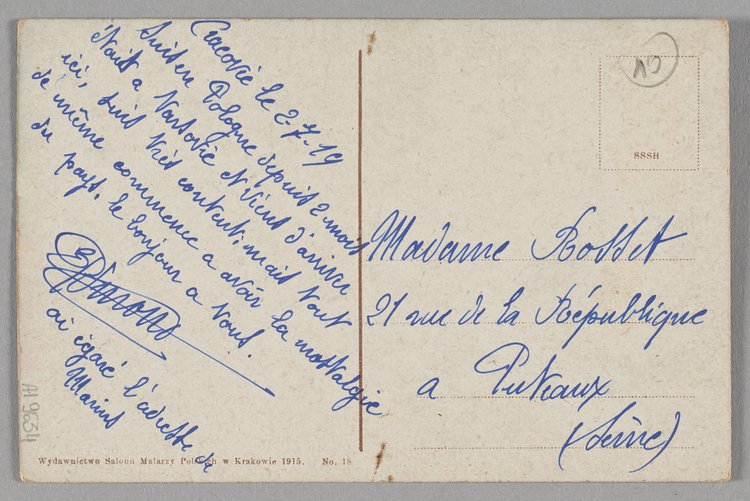 Cracovie le 2-7-19
Suis en Pologne depuis 2 mois
étais a Varsovie et viens d'arriver
ici, suis très content mais tout
de même commence a avoir la nostalgie
du pays. le bonjour a tous.
ai égaré l'adresse de
Marius
Madame Rosset
21 rue de la République
a Puteaux
(Seine)
SSSH
AH 9634
Wydawnictwo Salonu Malarzy Polskich w Krakowie 1915. No. 18